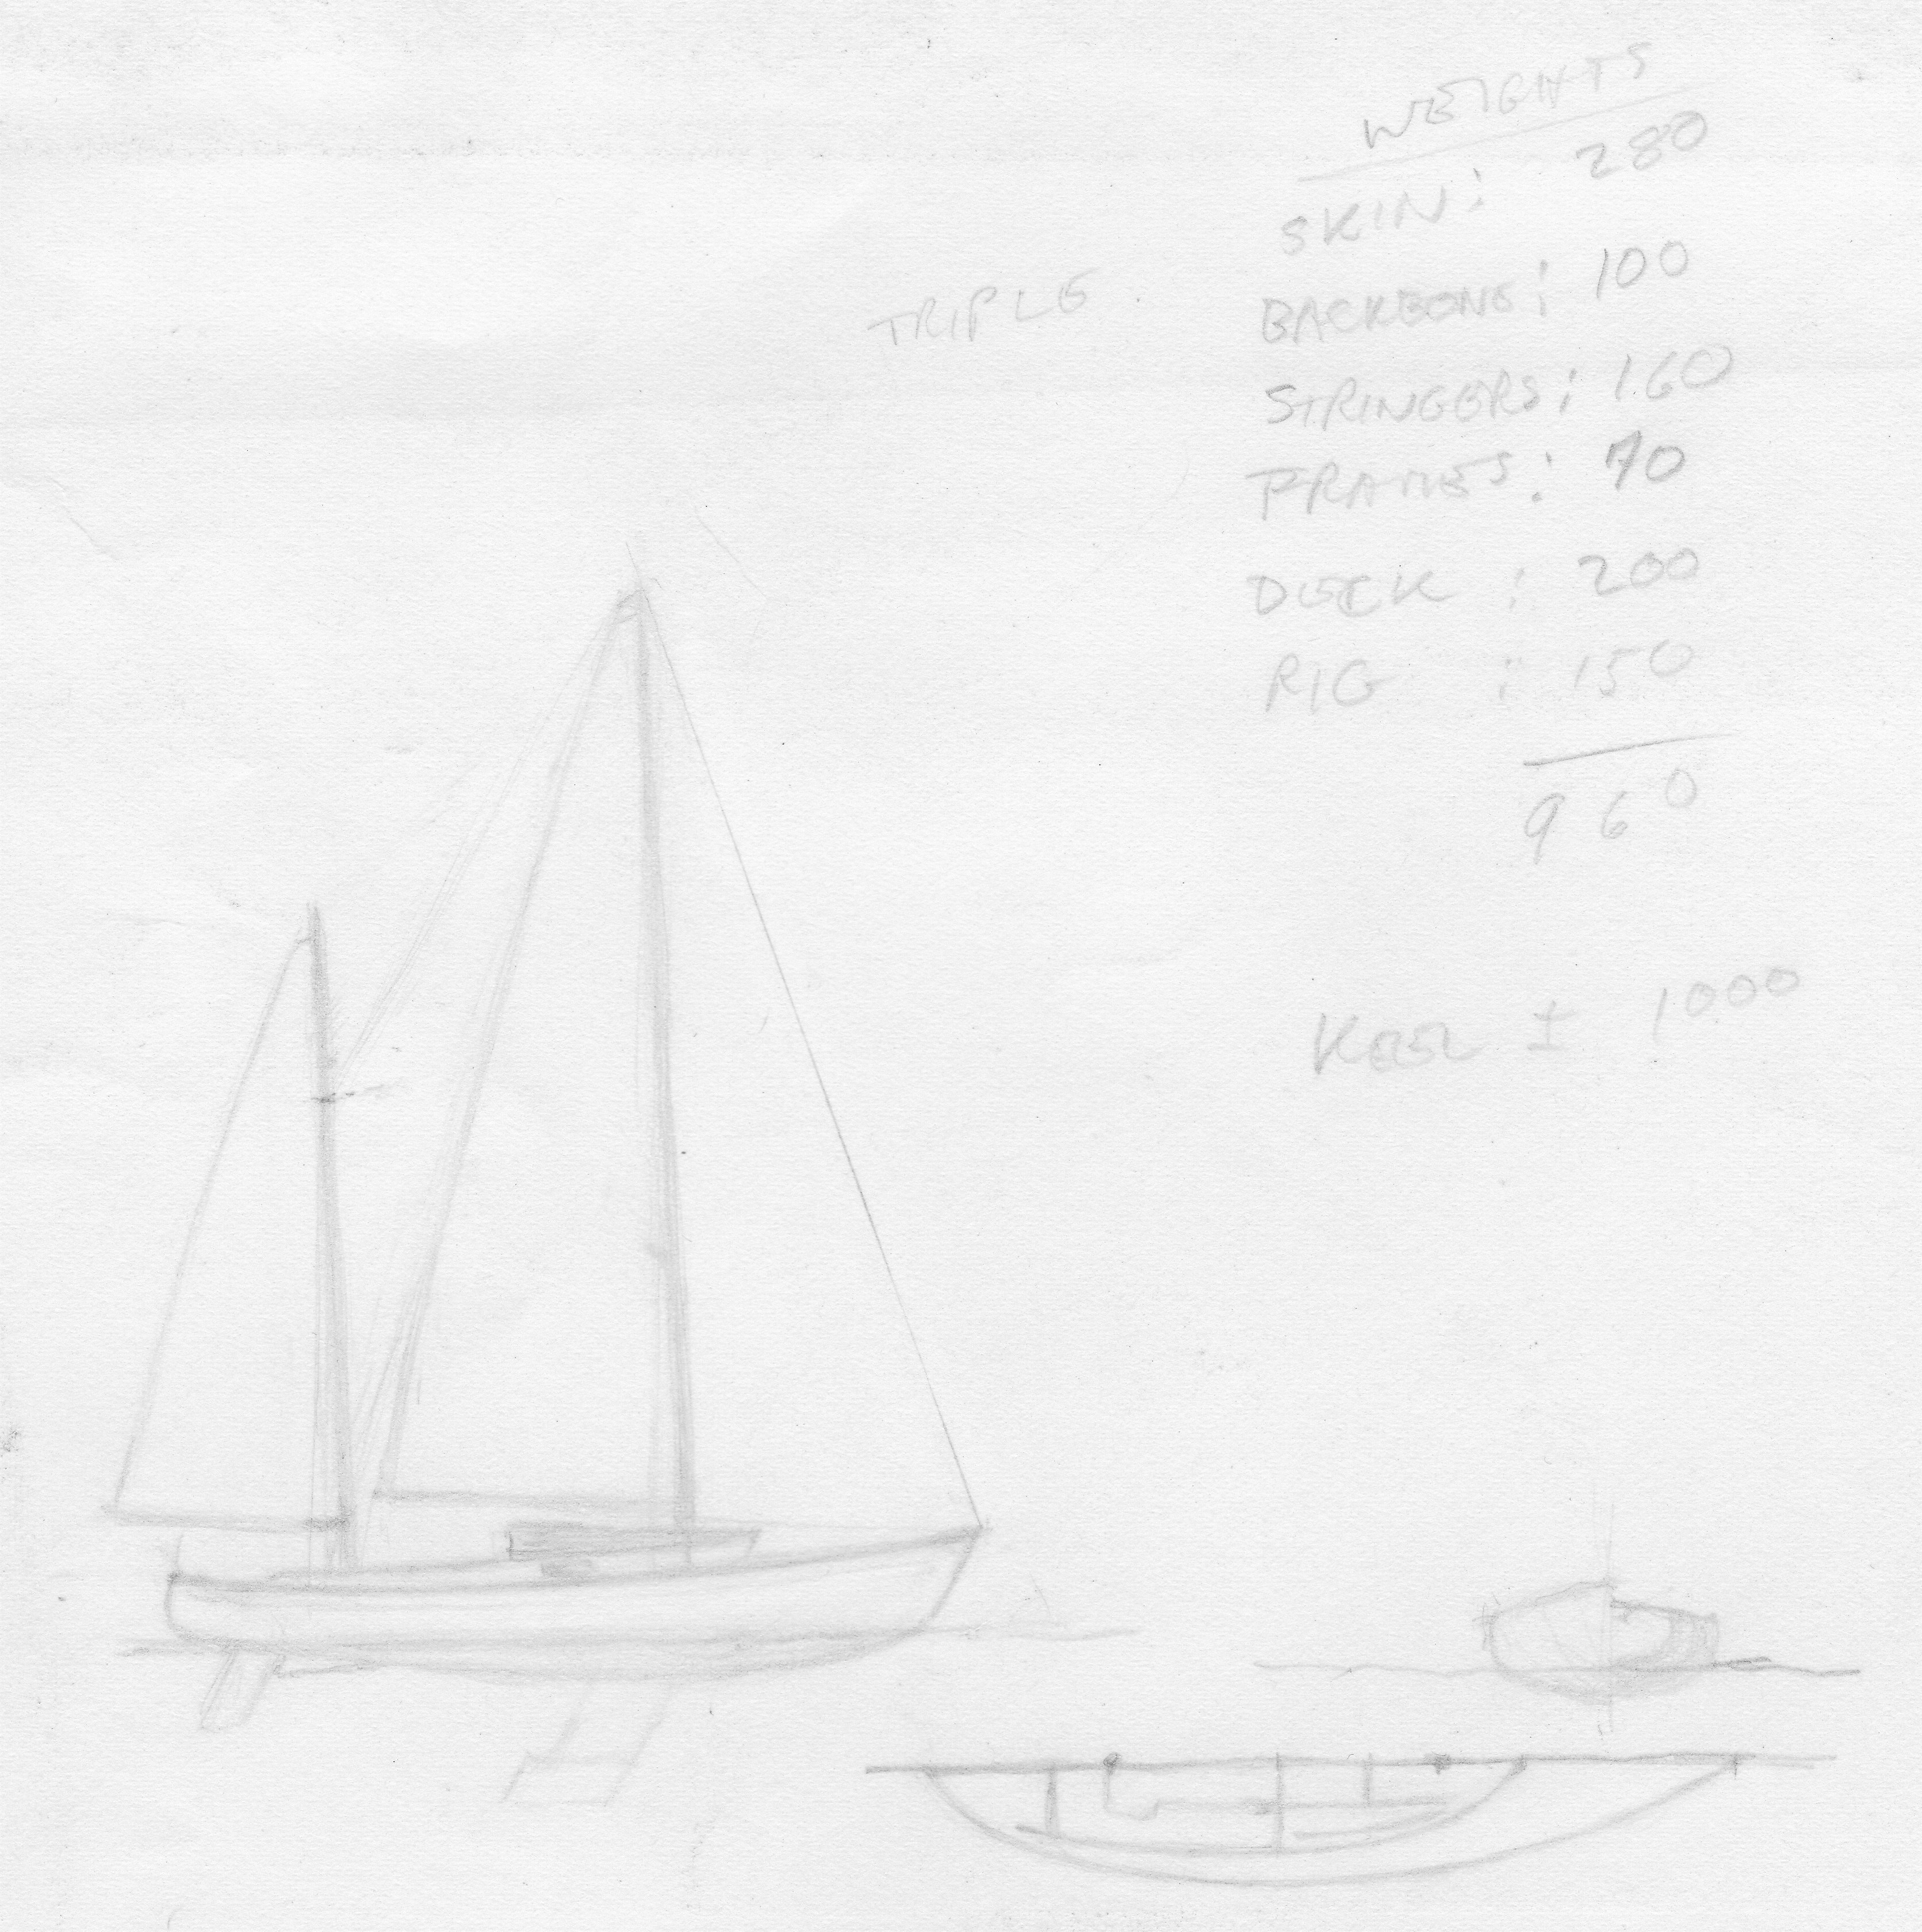 WEIGHTS
SKIN: 280
TRIPLE
BACKBONE: 100
STRINGERS: 160
FRAMES: 70
DECK : 200
RIG : 150
960
KEEL ± 1000